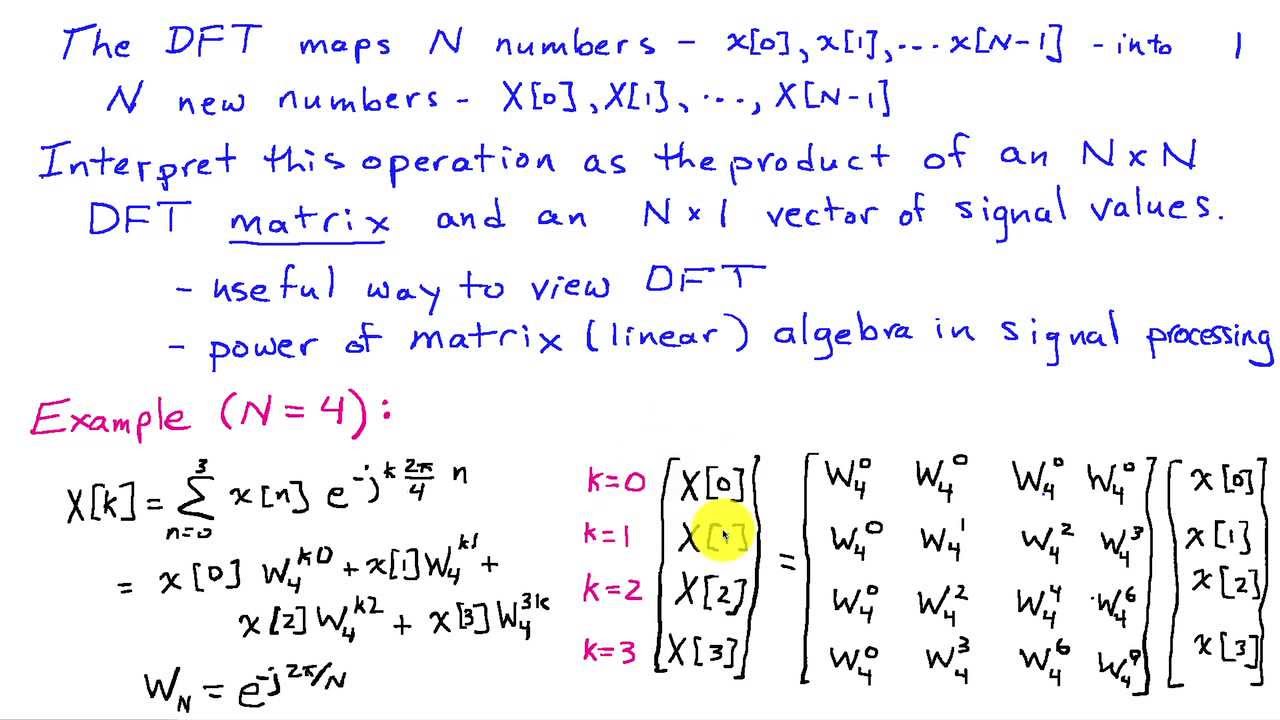 The DFT maps N numbers - x[0], x[1], ... x[N-1] - into 1
N new numbers - X[0], X[1], ..., X[N-1]
Interpret this operation as the product of an N x N
DFT matrix and an N x 1 vector of signal values.
- useful way to view DFT
- power of matrix (linear) algebra in signal processing
Example (N = 4):
X[k] = Σ_{n=0}^{3} x[n] e^{-jk 2π/4 n}
= x[0] W_4^{k0} + x[1] W_4^{k1} +
x[2] W_4^{k2} + x[3] W_4^{3k}
W_N = e^{-j2π/N}
k=0 [X[0]] [W_4^0 W_4^0 W_4^0 W_4^0] [x[0]]
k=1 [X[ ]] = [W_4^0 W_4^1 W_4^2 W_4^3] [x[1]]
k=2 [X[2]] [W_4^0 W_4^2 W_4^4 W_4^6] [x[2]]
k=3 [X[3]] [W_4^0 W_4^3 W_4^6 W_4^9] [x[3]]